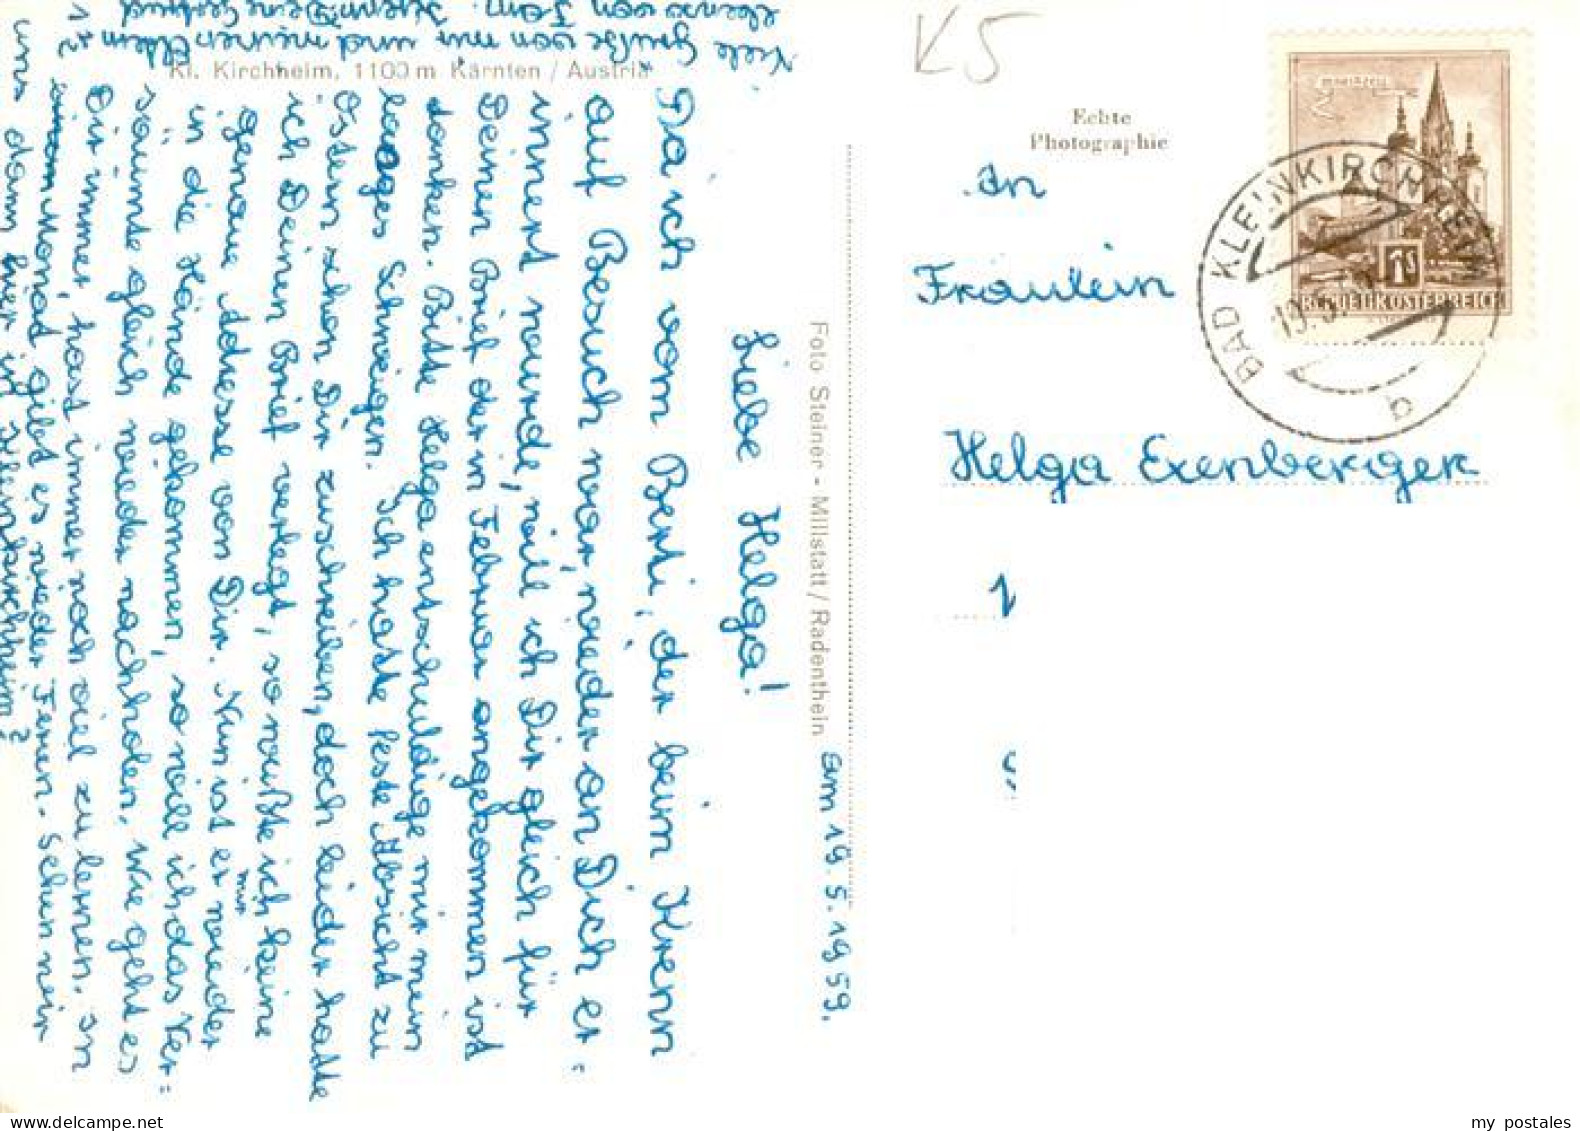 K5
Kl. Kirchheim, 1100 m Kärnten / Austria
Echte
Photographie
MARIAZELL
REPUBLIK ÖSTERREICH
BAD KLEINKIRCHHEIM
19.5.
An
Fräulein
Helga Exenberger
Foto Steiner - Millstatt / Radenthein
am 19. 5. 1959.
Liebe Helga!
Da ich vom Berti, der beim Krenn
auf Besuch war, wieder an Dich er=
innert wurde, will ich Dir gleich für
Deinen Brief der in Februar angekommen ist
danken. Bitte Helga entschuldige mir mein
langes Schweigen. Ich hatte feste Absicht zu
Ostern schon Dir zuschreiben, doch leider hatte
ich Deinen Brief verlegt, so wußte ich keine
genaue Adresse von Dir. Nun ist er mir wieder
in die Hände gekommen, so will ich das Ver=
säumte gleich wieder nachholen. Wie geht es
Dir immer, hast immer noch viel zu lernen. In
Monat gibt es wieder Ferien. Sehen wir
uns dann hier in Kleinkirchheim?
Viele Grüße von mir und meinen Eltern
ebenso von Fam. Krenn Deine Gertrud
my postales